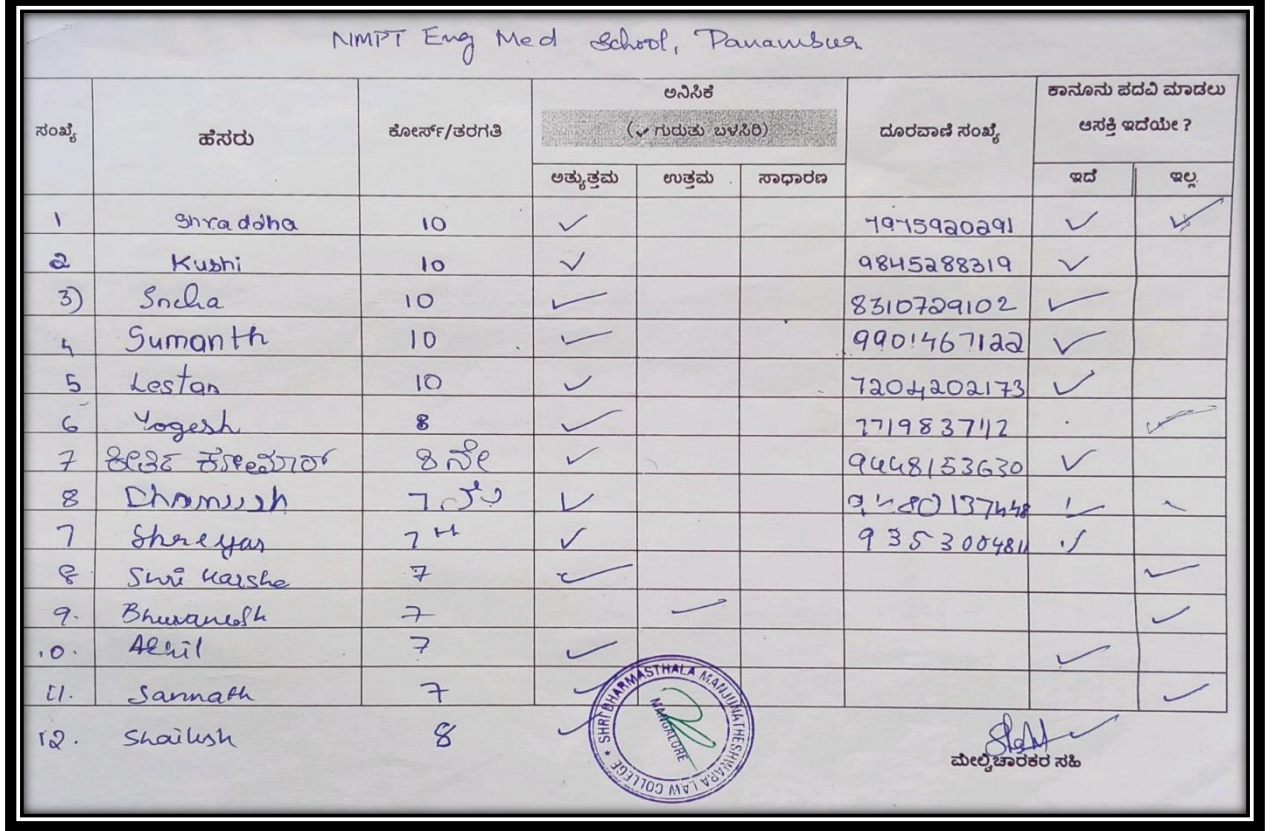 NMPT Eng Med School, Panambur
ಸಂಖ್ಯೆ ಹೆಸರು ಕೋರ್ಸ್/ತರಗತಿ ಅನಿಸಿಕೆ (✓ ಗುರುತು ಬಳಸಿರಿ) ದೂರವಾಣಿ ಸಂಖ್ಯೆ ಕಾನೂನು ಪದವಿ ಮಾಡಲು ಆಸಕ್ತಿ ಇದೆಯೇ ?
ಅತ್ಯುತ್ತಮ ಉತ್ತಮ ಸಾಧಾರಣ ಇದೆ ಇಲ್ಲ
1 Shraddha 10 ✓ 7975920291 ✓
2 Kushi 10 ✓ 9845288319 ✓
3) Sneha 10 ✓ 8310729102 ✓
4 Sumanth 10 ✓ 9901467122 ✓
5 Lestan 10 ✓ 7204202173 ✓
6 Yogesh 8 ✓ ✓
7 8ನೇ ✓ 9448153630 ✓
8 Dhanush 7 ✓ 9480137448 ✓
7 Shreyas 7th ✓ 9353004811 ✓
8 Shri Harsha 7 ✓ ✓
9. Bhuvanesh 7 ✓ ✓
10. Akhil 7 ✓ ✓
11. Sannath 7 ✓ ✓
12. Shailesh 8 ✓ ✓
SHRI DHARMASTHALA MANJUNATHESHWARA LAW COLLEGE * MANGALORE
ಮೇಲ್ವಿಚಾರಕರ ಸಹಿ